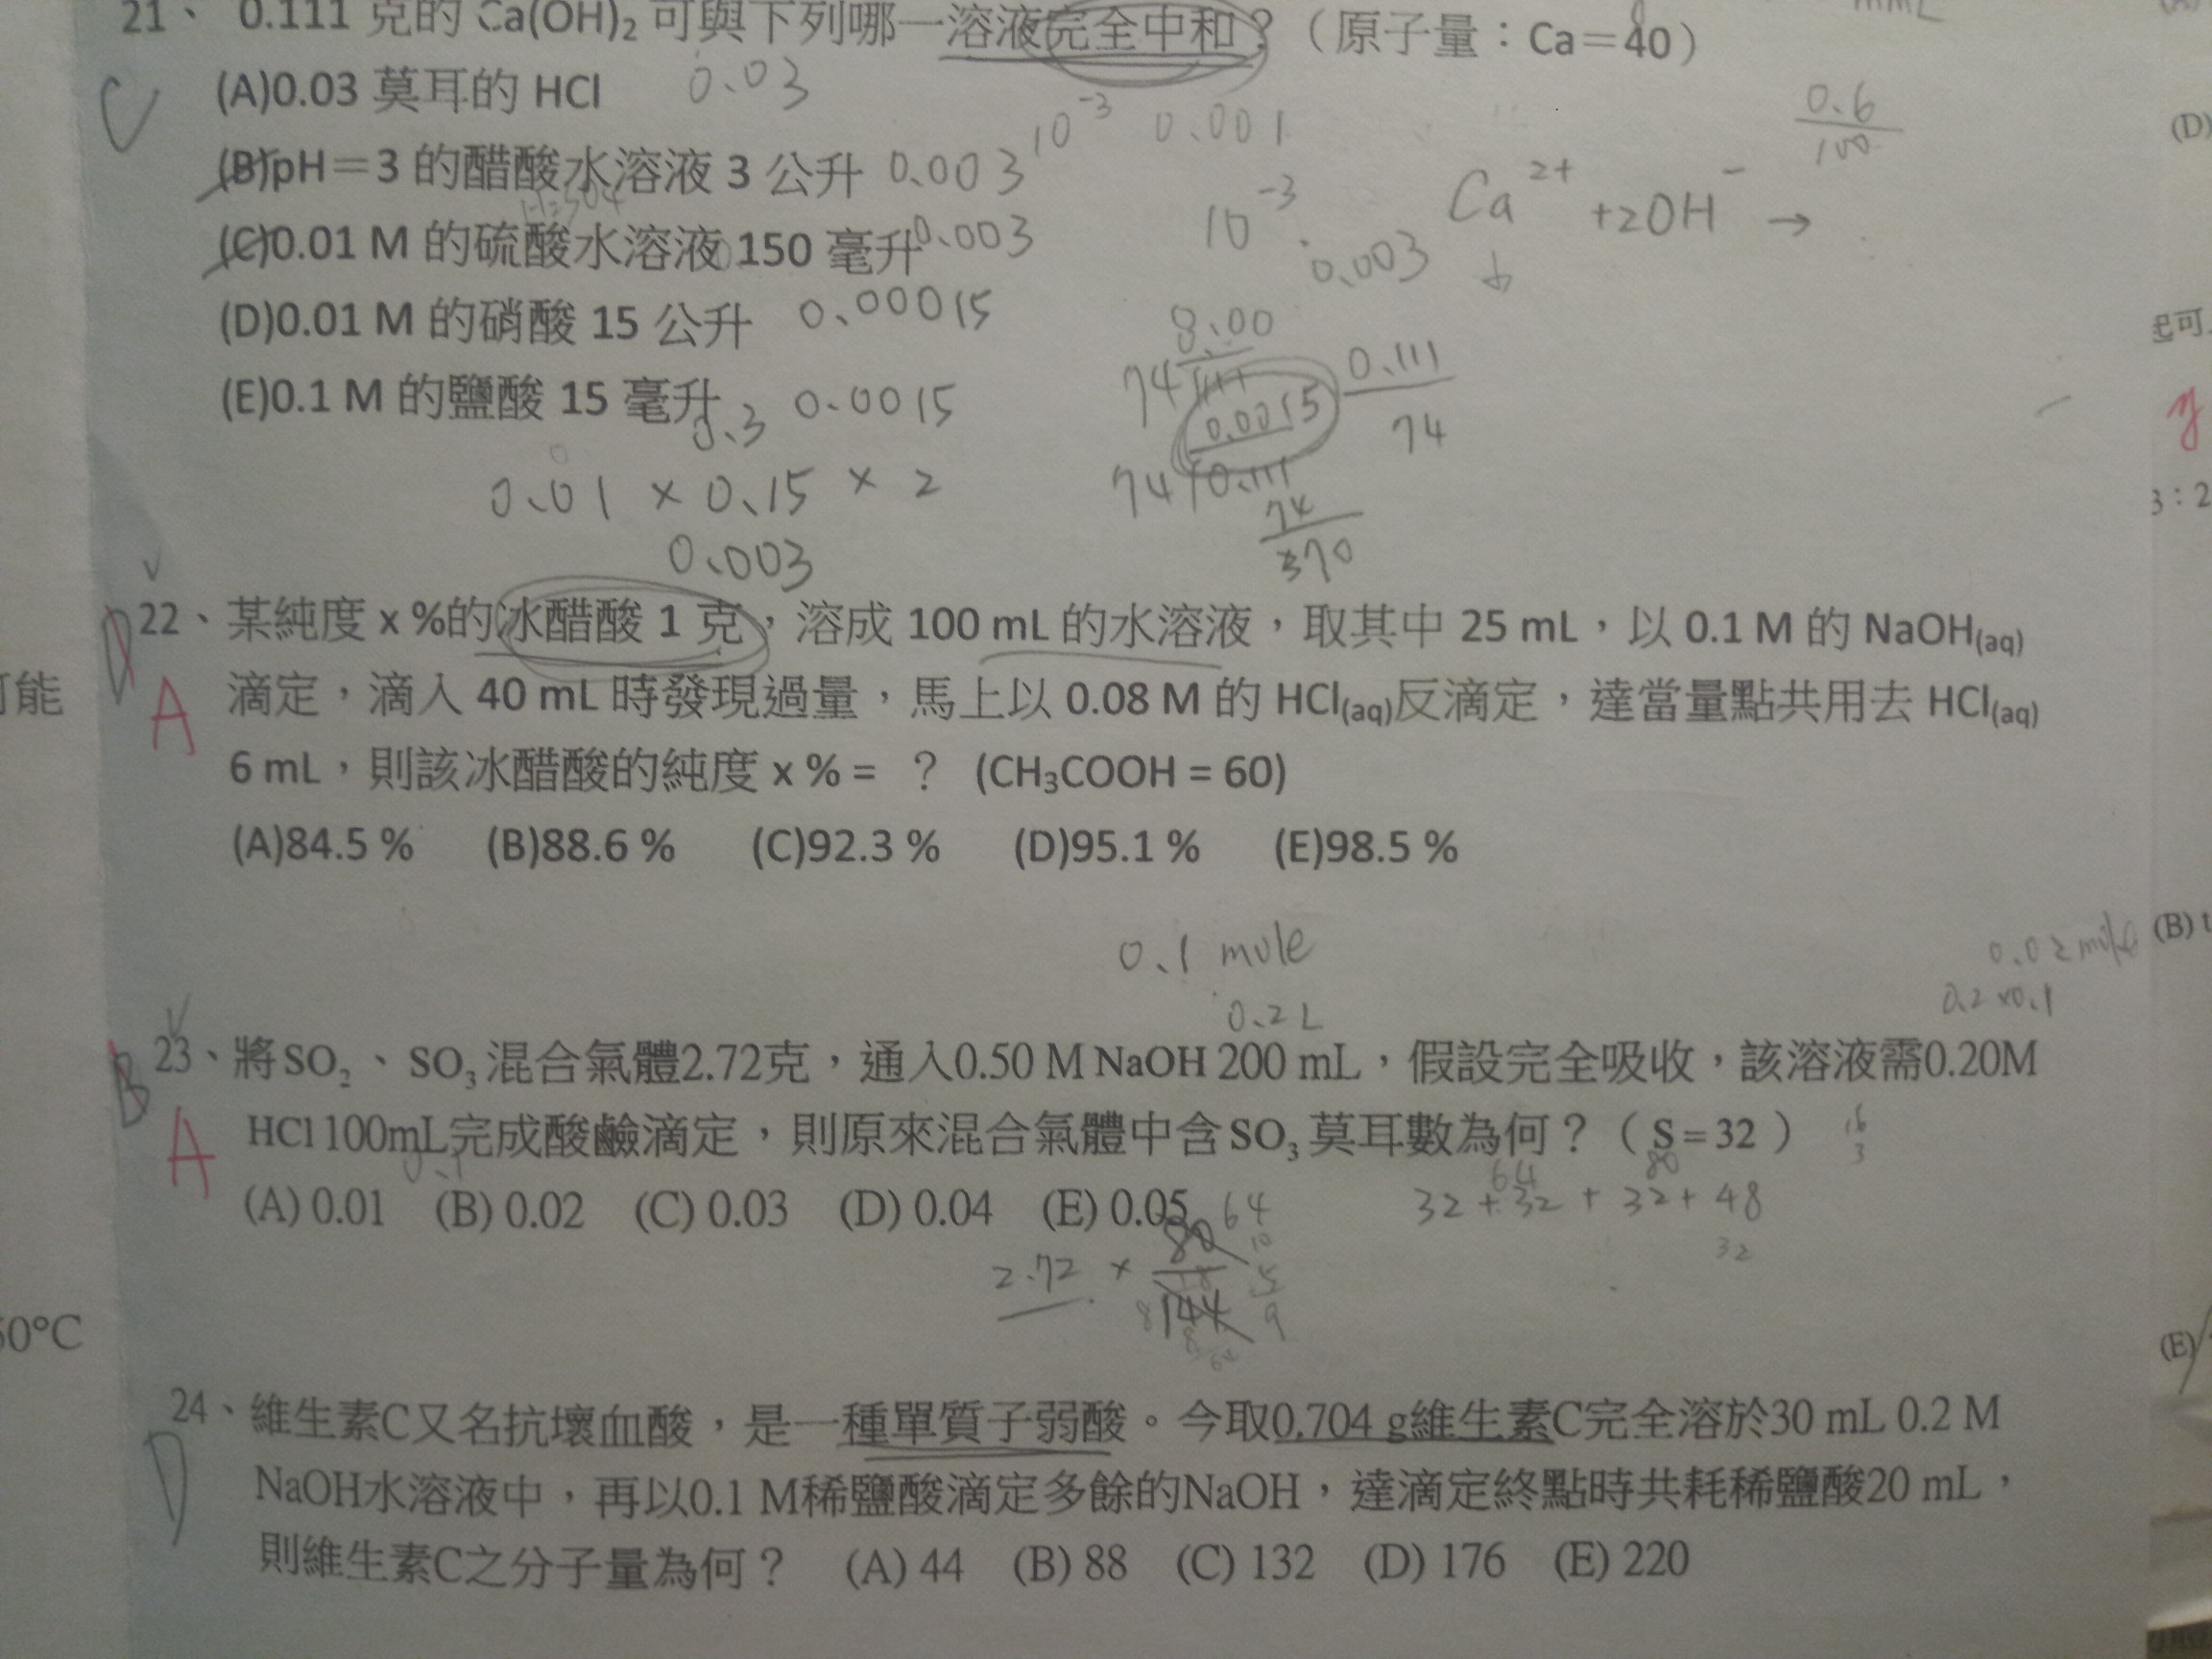 21、 0.111 克的 Ca(OH)₂ 可與下列哪一溶液完全中和？（原子量：Ca＝40）
C
(A)0.03 莫耳的 HCl 0.03
10⁻³ 0.001
0.6
100
(B)pH＝3 的醋酸水溶液 3 公升 0.003
10⁻³
0.003
Ca²⁺ +2OH⁻ →
(C)0.01 M 的硫酸水溶液 150 毫升 0.003
(D)0.01 M 的硝酸 15 公升 0.00015
(E)0.1 M 的鹽酸 15 毫升 0.0015
0.3
0.111
74
0.0015
74 0.111
74
370
0.01 × 0.15 × 2
0.003
22、某純度 x %的冰醋酸 1 克，溶成 100 mL 的水溶液，取其中 25 mL，以 0.1 M 的 NaOH(aq)
D
A
滴定，滴入 40 mL 時發現過量，馬上以 0.08 M 的 HCl(aq)反滴定，達當量點共用去 HCl(aq)
6 mL，則該冰醋酸的純度 x % = ？ (CH₃COOH = 60)
(A)84.5 % (B)88.6 % (C)92.3 % (D)95.1 % (E)98.5 %
0.1 mole
0.2 L
0.02 mole
0.2 ×0.1
23、將SO₂、SO₃混合氣體2.72克，通入0.50 M NaOH 200 mL，假設完全吸收，該溶液需0.20M
B
A
HCl 100mL完成酸鹼滴定，則原來混合氣體中含SO₃莫耳數為何？（S＝32）
0.1
16
3
64 80
(A) 0.01 (B) 0.02 (C) 0.03 (D) 0.04 (E) 0.05
32 + 32 + 32 + 48
32
64
2.72 × 80
144
24、維生素C又名抗壞血酸，是一種單質子弱酸。今取0.704 g維生素C完全溶於30 mL 0.2 M
D
NaOH水溶液中，再以0.1 M稀鹽酸滴定多餘的NaOH，達滴定終點時共耗稀鹽酸20 mL，
則維生素C之分子量為何？ (A) 44 (B) 88 (C) 132 (D) 176 (E) 220
可能
50°C
(D)
3：2
(B)
(E)